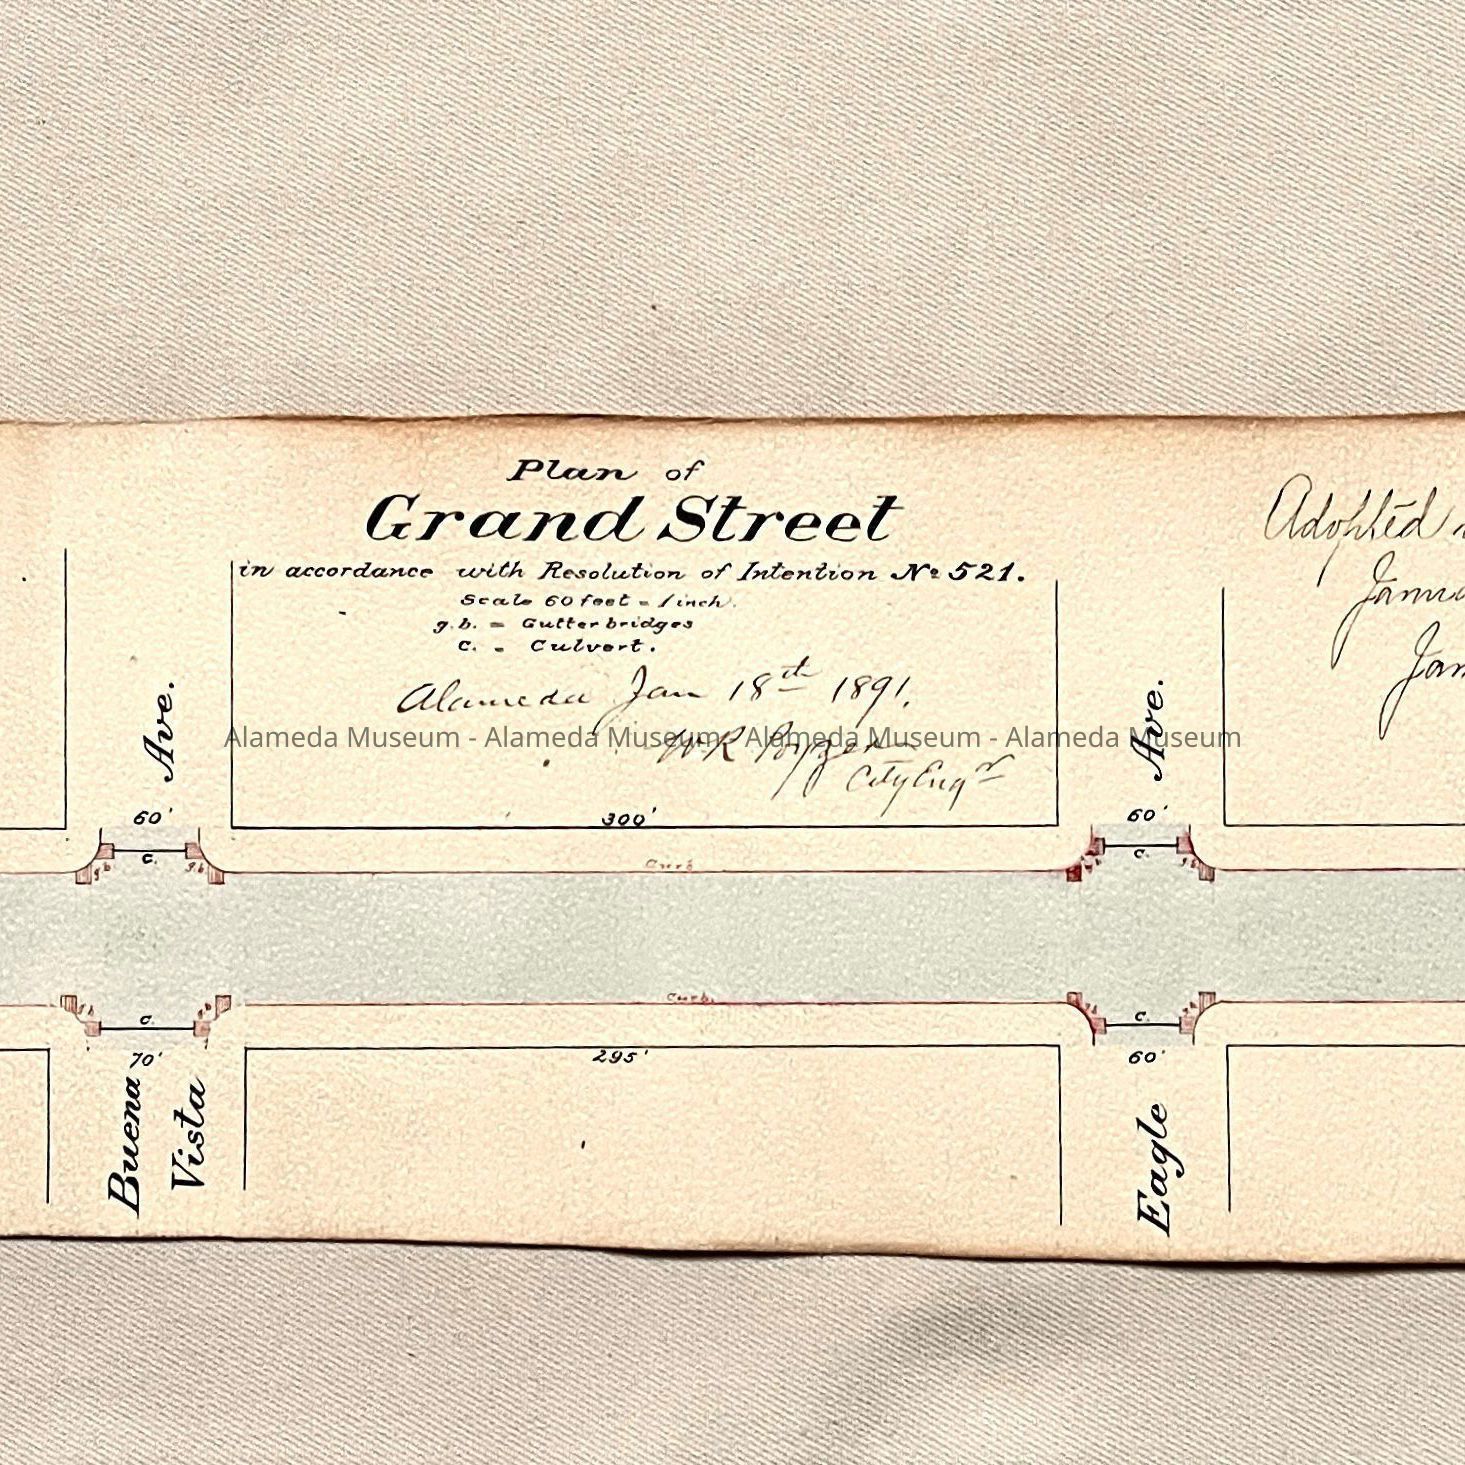 Plan of
Grand Street
in accordance with Resolution of Intention No 521.
Scale 60 feet = 1 inch.
g.b. = Gutter bridges
c. = Culvert.
Alameda Jan 18th 1891.
W R
City Engr
Adopted
Alameda Museum - Alameda Museum - Alameda Museum - Alameda Museum
Ave.
Ave.
60'
300'
60'
c.
g.b
Curb
c.
g.b
g.b
Curb.
g.b
c.
c.
70'
295'
60'
Buena
Vista
Eagle